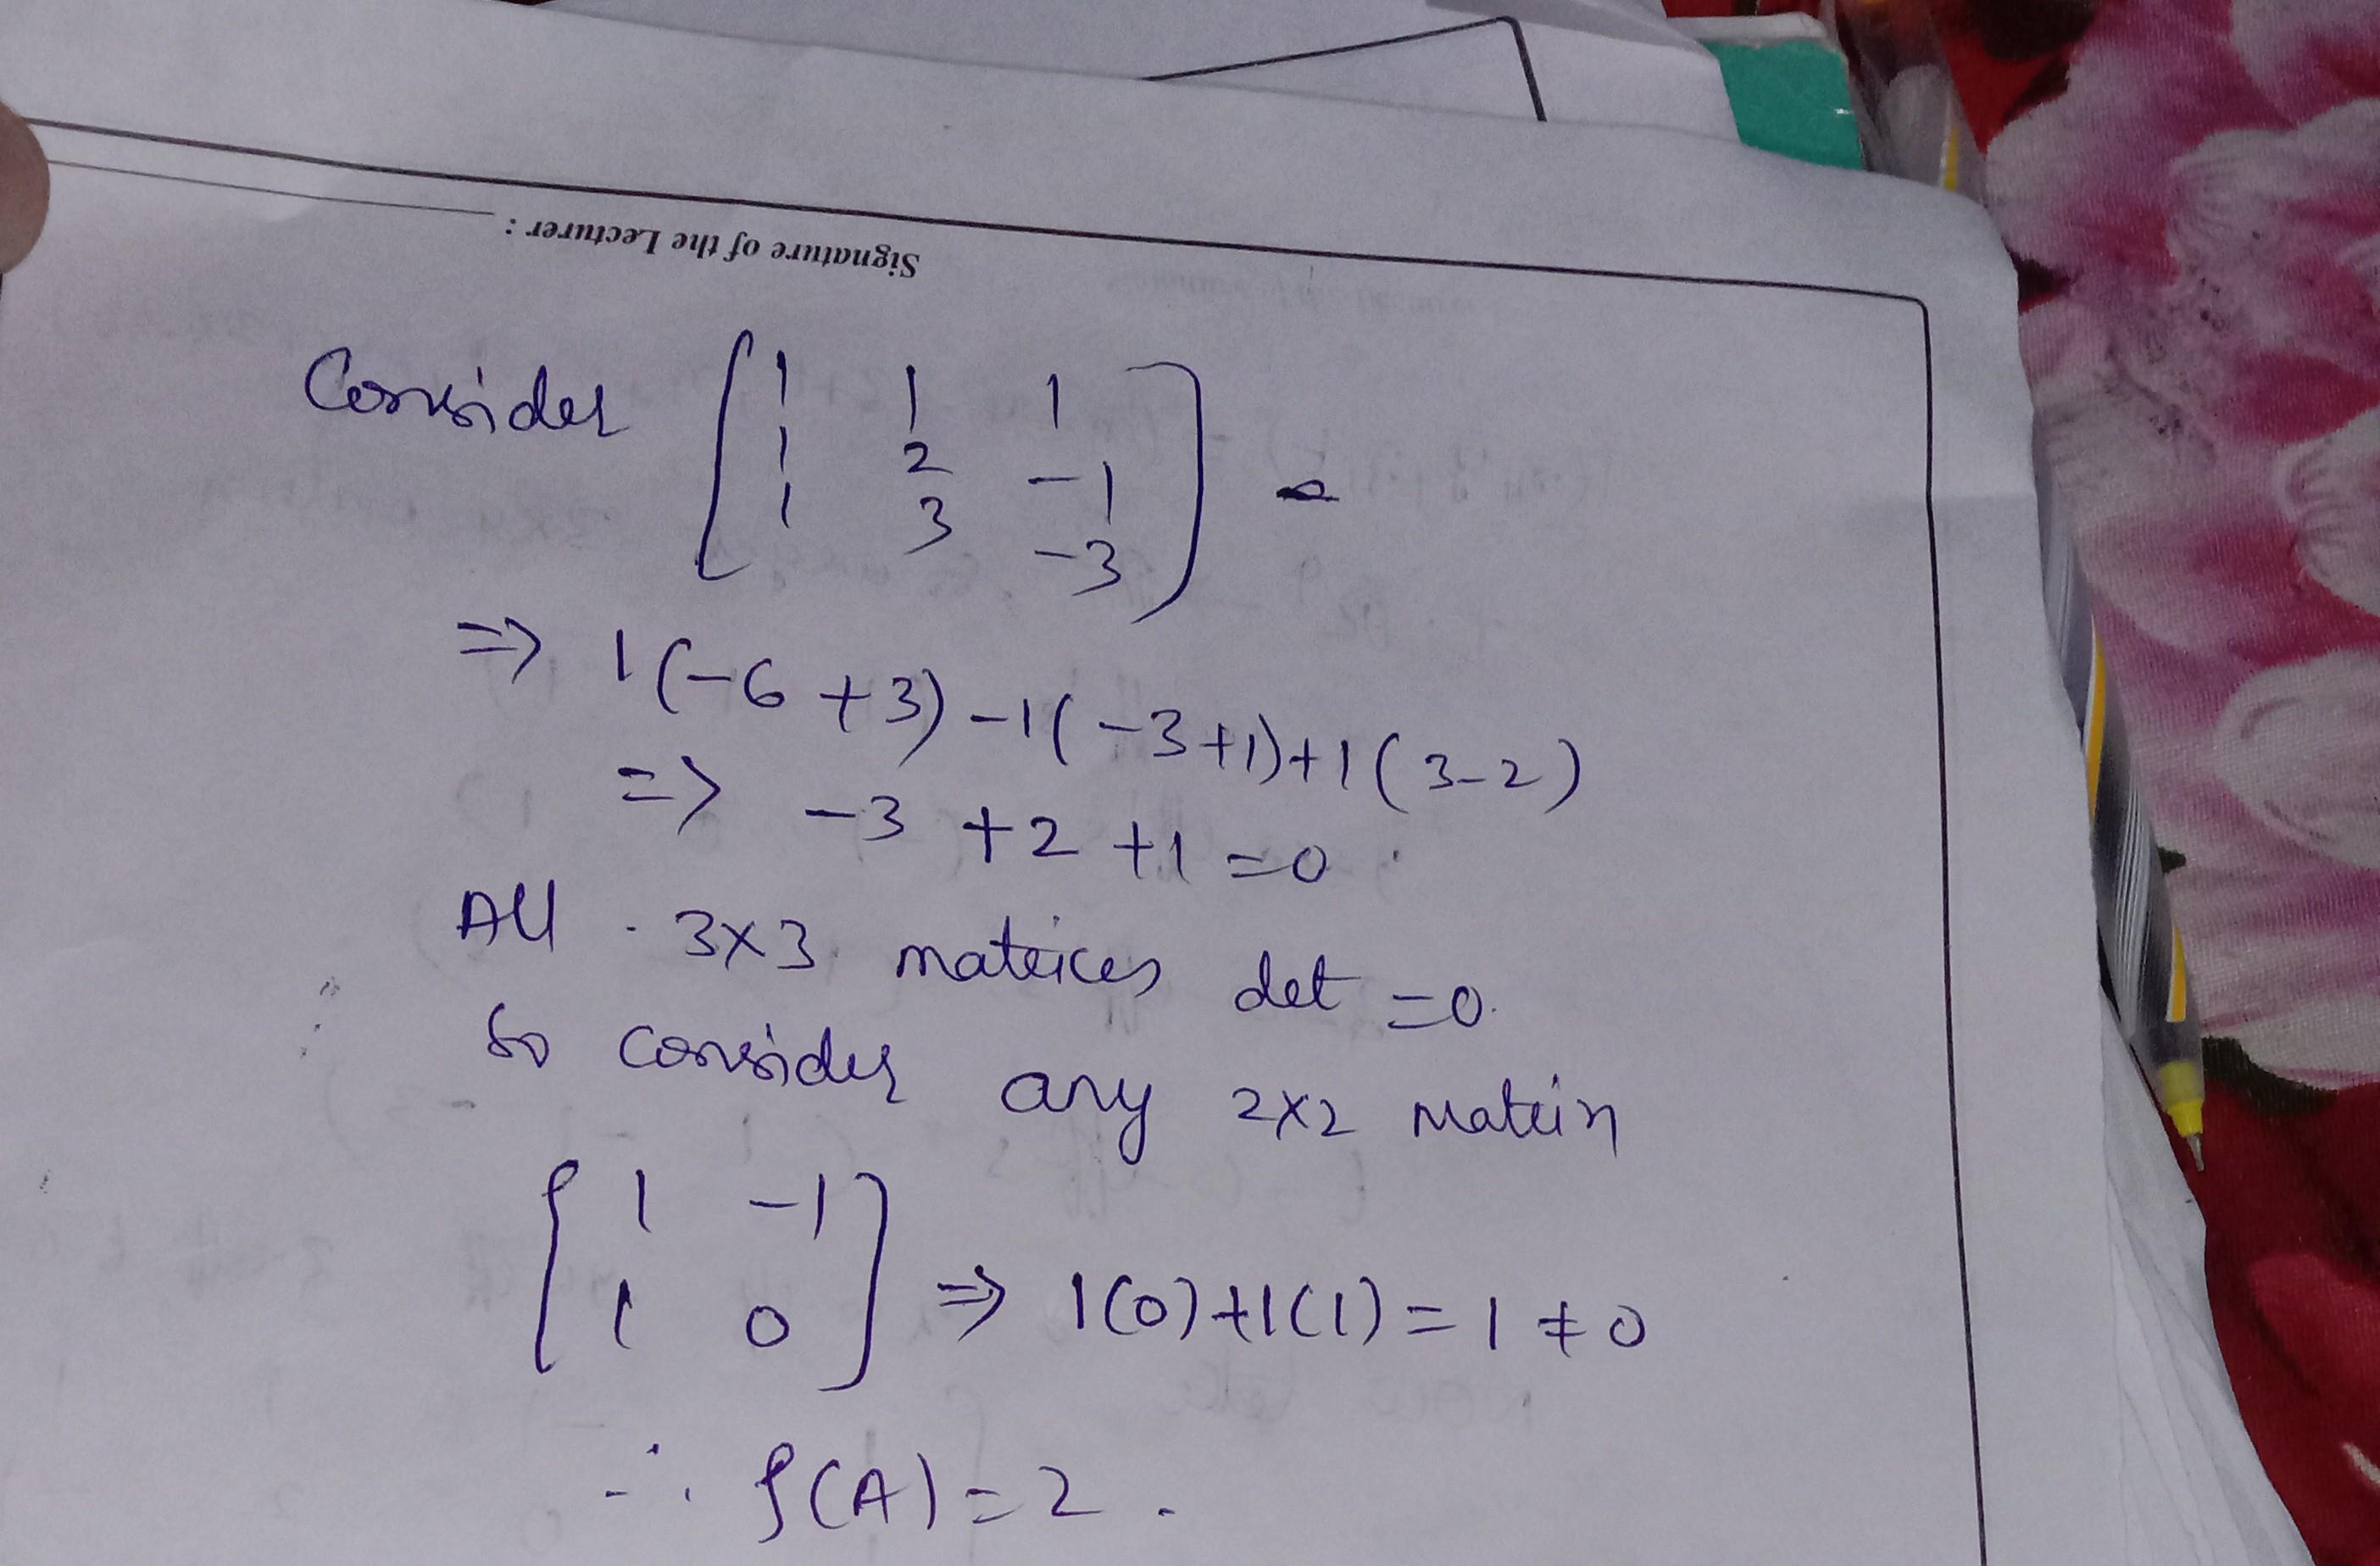 Signature of the Lecturer :
Consider [ 1 1 1
1 2 -1
1 3 -3 ]
=> 1(-6+3)-1(-3+1)+1(3-2)
=> -3 +2 +1 =0
All 3x3 matrices det =0.
So consider any 2x2 Matrix
[ 1 -1
1 0 ] => 1(0)+1(1)=1≠0
∴ ρ(A)=2.